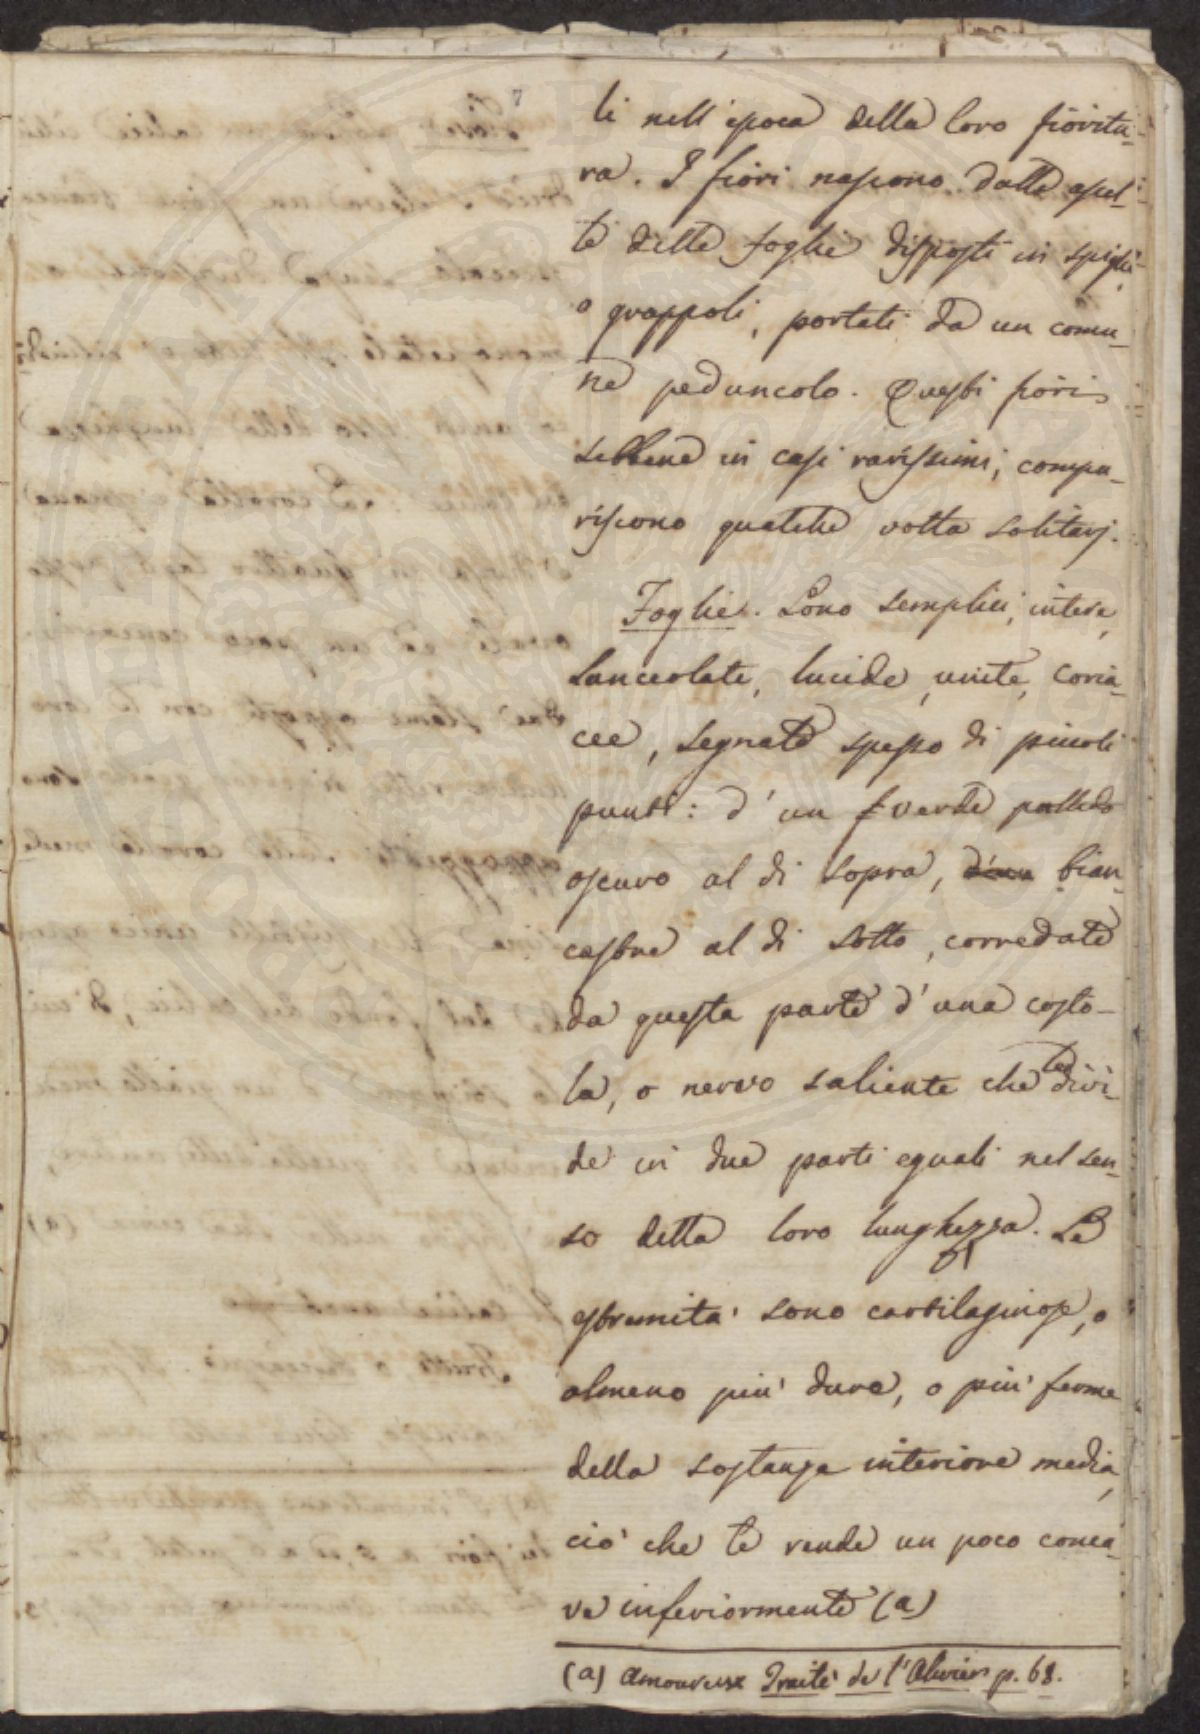 7
li nell'epoca della loro fioritu-
ra. I fiori nascono dalle ascel-
le delle foglie disposti in spighe,
o grappoli, portati da un comu-
ne peduncolo. Questi fiori
sebbene in casi rarissimi, compa-
riscono qualche volta solitarj.
Foglie. Sono semplici, intere,
lanceolate, lucide, unite, coria-
cee, segnate spesso di piccoli
punti: d'un verde pallido
oscuro al di sopra, d'un bian-
castre al di sotto, corredate
da questa parte d'una costo-
la, o nervo saliente che le divi-
de in due parti eguali nel sen-
so della loro lunghezza. Le
estremità sono cartilaginose, o
almeno più dure, o più ferme
della sostanza interiore media,
ciò che le rende un poco conca-
ve inferiormente (a)
(a) Amoureux Traité de l'Olivier p. 68.